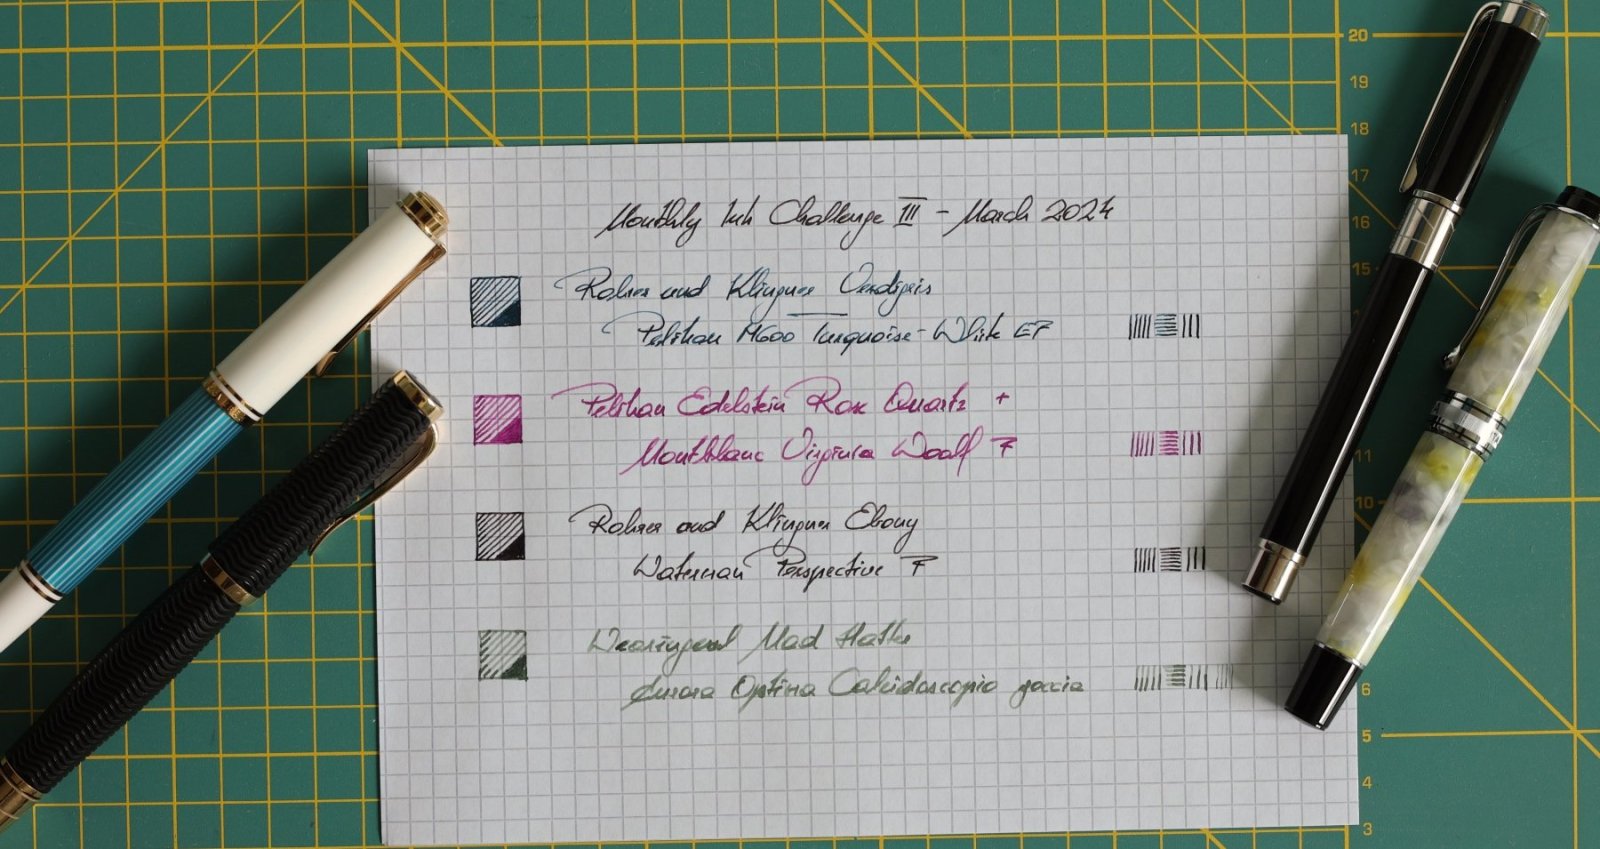 Monthly Ink Challenge III - March 2024
Rohrer and Klingner Verdigris
Pelikan M600 Turquoise-White EF
Pelikan Edelstein Rose Quartz +
Montblanc Virginia Woolf F
Rohrer and Klingner Ebony
Waterman Perspective F
Wearingeul Mad Hatter
Aurora Optima Caleidoscopio goccia
20
19
18
17
16
15
11
10
6
5
4
3